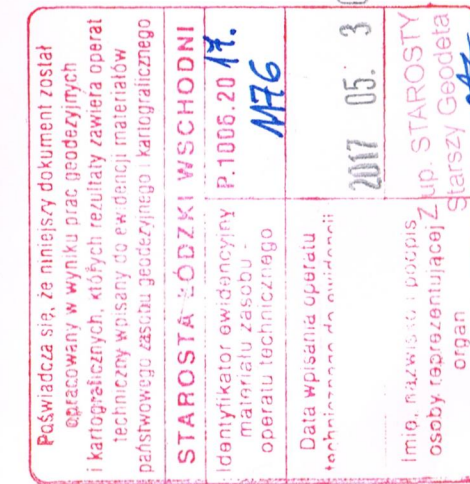 Poświadcza się, że niniejszy dokument został
opracowany w wyniku prac geodezyjnych
i kartograficznych, których rezultaty zawiera operat
techniczny wpisany do ewidencji materiałów
państwowego zasobu geodezyjnego i kartograficznego
STAROSTA ŁÓDZKI WSCHODNI
Identyfikator ewidencyjny
materiału zasobu -
operatu technicznego
P.1006.2017.
1176
Data wpisania operatu
technicznego do ewidencji
2017 05. 3
Imię, nazwisko i podpis
osoby reprezentującej
organ
Z up. STAROSTY
Starszy Geodeta